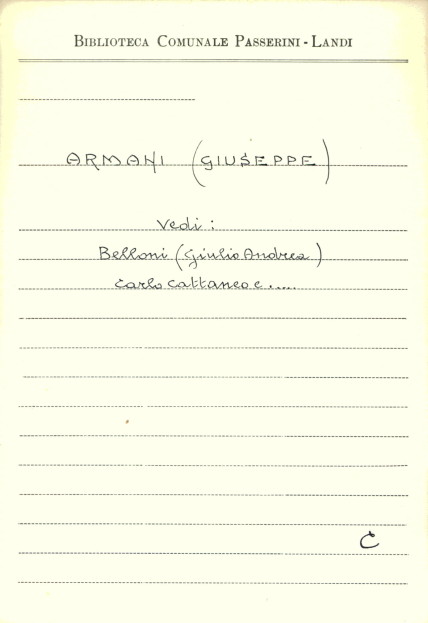 BIBLIOTECA COMUNALE PASSERINI - LANDI
ARMANI (GIUSEPPE)
Vedi :
Belloni (Giulio Andrea)
Carlo Cattaneo e .....
C